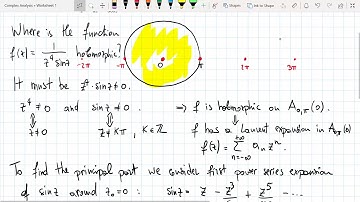 Complex Analysis - Worksheet 1
Where is the function
f(z) = 1/(z⁴ sin z) holomorphic?
-2π -π 0 π 2π 3π
It must be z⁴·sin z ≠ 0.
z⁴ ≠ 0 and sin z ≠ 0. ⇒ f is holomorphic on A₀,π(0).
⇕ ⇕ ⇓
z ≠ 0 z ≠ kπ, k ∈ ℤ f has a Laurent expansion in A₀,π(0)
f(z) = ∑_{n=-∞}^{+∞} aₙ zⁿ.
To find the principal part we consider first power series expansion
of sin z around z₀ = 0: sin z = z - z³/ + z⁵/ - ...